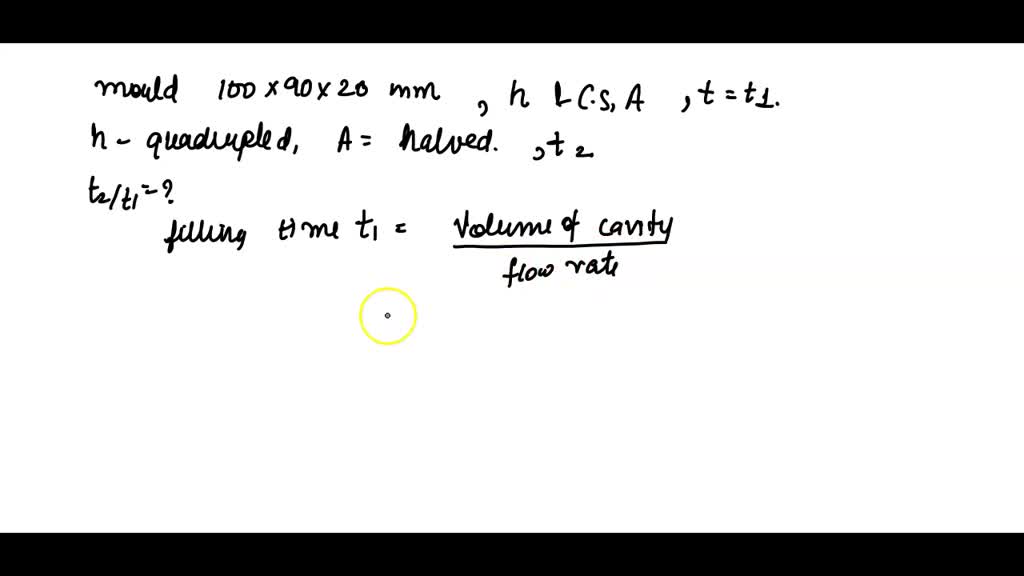 mould 100 × 90 × 20 mm , h & C.S, A , t = t1.
h - quadrupled, A = halved. , t2
t2/t1 = ?
filling time t1 = Volume of cavity
flow rate